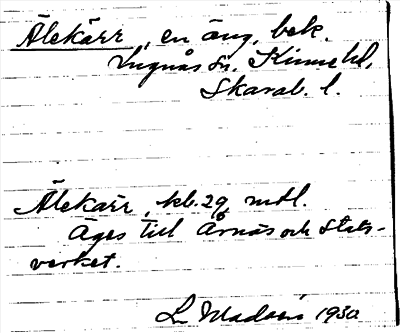 Älekärr, en äng, bek.
Ugnås sn. Kinne hd,
Skarab. l.
Älekärr, kb. 29 mtl.
Äges till Årnäs och Stats-
verket.
L. 1930